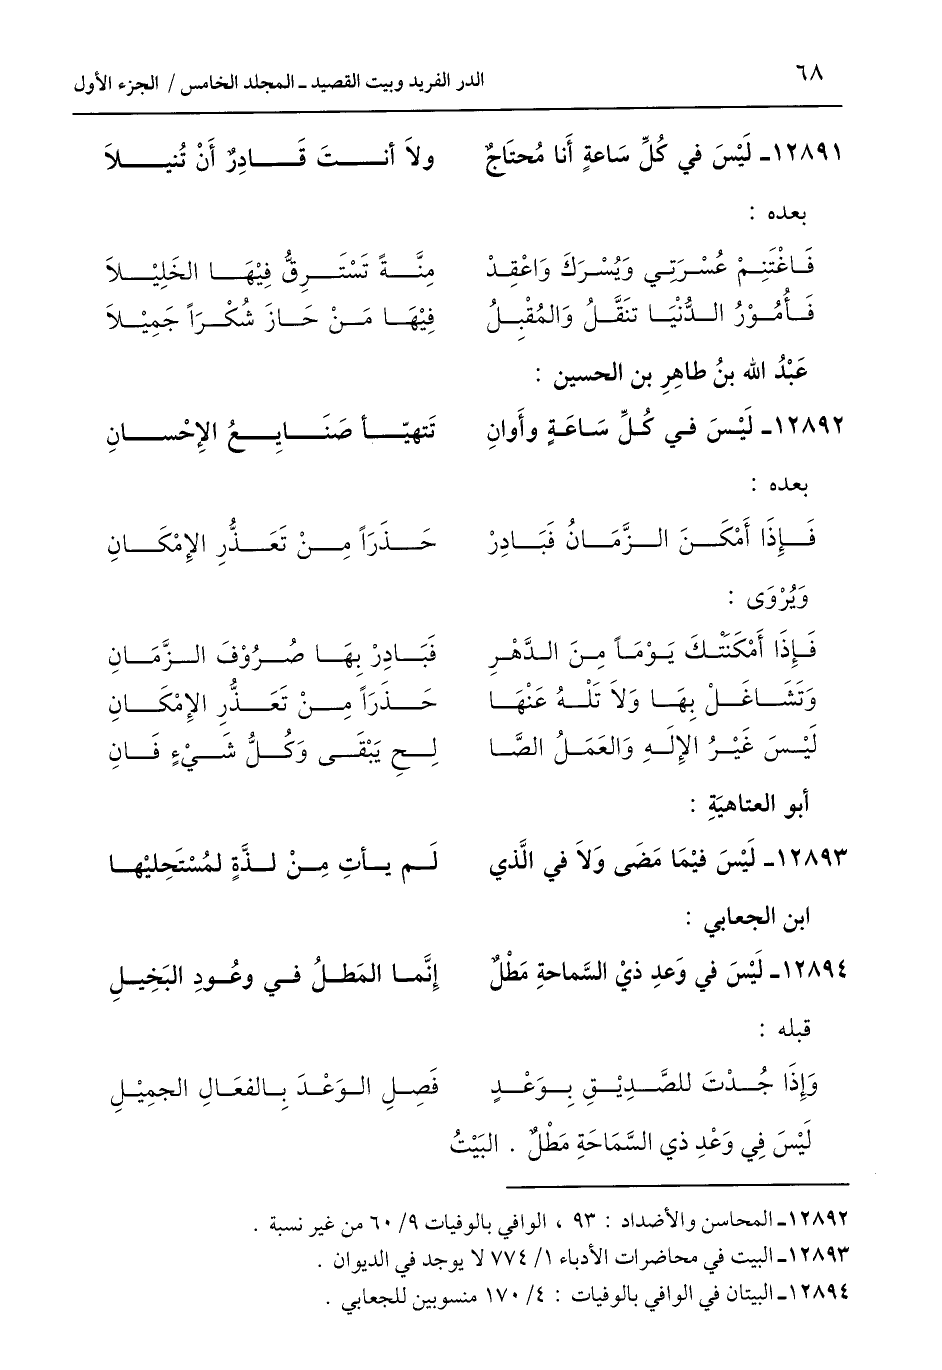 ٦٨ الدر الفريد وبيت القصيد ـ المجلد الخامس / الجزء الأول
١٢٨٩١ـ لَيْسَ في كُلِّ سَاعةٍ أَنا مُحتَاجٌ ولاَ أنــتَ قَــادِرٌ أَنْ تُنيــلاَ
بعده :
فَاغْتَنِمْ عُسْرَتِي وَيُسْرَكَ وَاعْقِدْ مِنَّــةً تَسْتَــرِقُّ فِيْهَــا الخَلِيْــلاَ
فَــأُمُــوْرُ الــدُّنْيَــا تنَقَّــلُ وَالمُقْبِــلُ فِيْهَــا مَــنْ حَــازَ شُكْــرَاً جَمِيْــلاَ
عَبْدُ الله بنُ طاهِرِ بن الحسين :
١٢٨٩٢ـ لَيْــسَ فــي كُــلِّ سَــاعَــةٍ وأَوانِ تَتهيّــأ صَنَــايــعُ الإِحْســانِ
بعده :
فَــإِذَا أَمْكَــنَ الــزَّمَــانُ فَبَــادِرْ حَــذَرَاً مِــنْ تَعَــذُّرِ الإمْكَــانِ
وَيُرْوَى :
فَــإِذَا أَمْكَنَتْــكَ يَــوْمَــاً مِــنَ الــدَّهْــرِ فَبَــادِرْ بِهَــا صُــرُوْفَ الــزَّمَــانِ
وَتَشَــاغَــلْ بِهَــا وَلاَ تَلْــهُ عَنْهَــا حَــذَرَاً مِــنْ تَعَــذُّرِ الإمْكَــانِ
لَيْــسَ غَيْــرُ الإلَــهِ وَالعَمَــلُ الصَّــا لِــحِ يَبْقَــى وَكُــلُّ شَــيْءٍ فَــانِ
أبو العتاهيَةِ :
١٢٨٩٣ـ لَيْسَ فيْمَا مَضَى وَلاَ في الَّذي لَــم يــأتِ مِــنْ لــذَّةٍ لمُسْتَحلِيْهــا
ابن الجعابي :
١٢٨٩٤ـ لَيْسَ في وَعدِ ذيْ السَّماحةِ مَطْلٌ إنَّمــا المَطــلُ فــي وعُــودِ البَخِيــلِ
قبله :
وَإِذَا جُــدْتَ للصَّــدِيْــقِ بِــوَعْــدٍ فَصِــلِ الــوَعْــدَ بِــالفعَــالِ الجمِيْــلِ
لَيْسَ فِي وَعْدِ ذي السَّمَاحَةِ مَطْلٌ . البَيْتُ
١٢٨٩٢ـ المحاسن والأضداد : ٩٣ ، الوافي بالوفيات ٩/ ٦٠ من غير نسبة .
١٢٨٩٣ـ البيت في محاضرات الأدباء ١/ ٧٧٤ لا يوجد في الديوان .
١٢٨٩٤ـ البيتان في الوافي بالوفيات : ٤/ ١٧٠ منسوبين للجعابي .